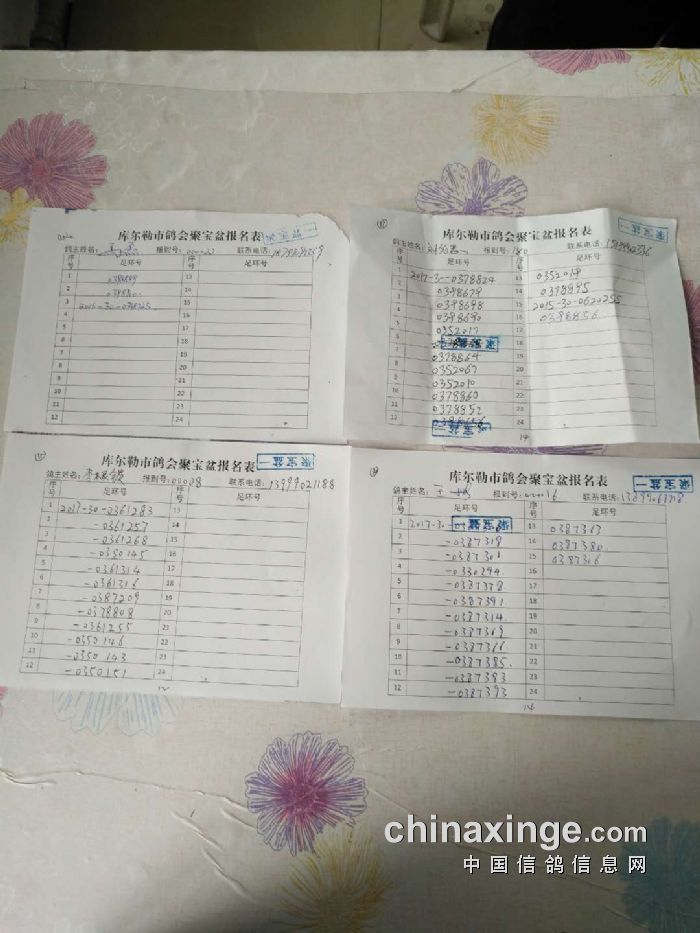 库尔勒市鸽会聚宝盆报名表
聚宝盆一
鸽主姓名: 报到号: 联系电话:
序号 足环号 序号 足环号
1 13
2 14
3 15
4 16
5 17
6 18
7 19
8 20
9 21
10 22
11 23
12 24
库尔勒市鸽会聚宝盆报名表
聚宝盆一
鸽主姓名: 报到号: 联系电话:
序号 足环号 序号 足环号
1 2017-30-0378824 13 0352019
2 0398679 14 0378895
3 0398698 15 2015-30-0620255
4 0398690 16 0398856
5 0352017 17
6 18
7 0378864 19
8 0352067 20
9 0352010 21
10 0378860 22
11 0378852 23
12 24
14
库尔勒市鸽会聚宝盆报名表
聚宝盆一
鸽主姓名: 报到号:00008 联系电话:13999021188
序号 足环号 序号 足环号
1 2017-30-0361283 13
2 -0361257 14
3 -0361268 15
4 -0350145 16
5 -0361314 17
6 -0361316 18
7 -0387209 19
8 -0378808 20
9 -0361255 21
10 -0350146 22
11 -0350143 23
12 -0350151 24
12
库尔勒市鸽会聚宝盆报名表
聚宝盆一
鸽主姓名:王 报到号:00016 联系电话:
序号 足环号 序号 足环号
1 2017-30 13 0387363
2 -0387319 14 0387380
3 -0387301 15 0387306
4 -0330294 16
5 -0387378 17
6 -0387391 18
7 -0387314 19
8 -0387369 20
9 -0387366 21
10 -0387385 22
11 -0387383 23
12 -0387393 24
14
chinaxinge.com
中国信鸽信息网